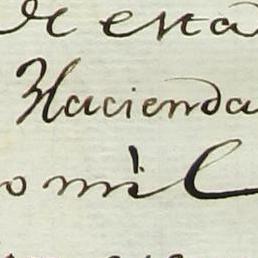 de esta
Hacienda
o mil